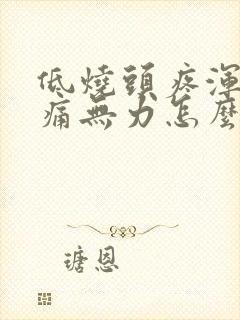 低燒頭疼渾
痛無力怎麼
瑭恩